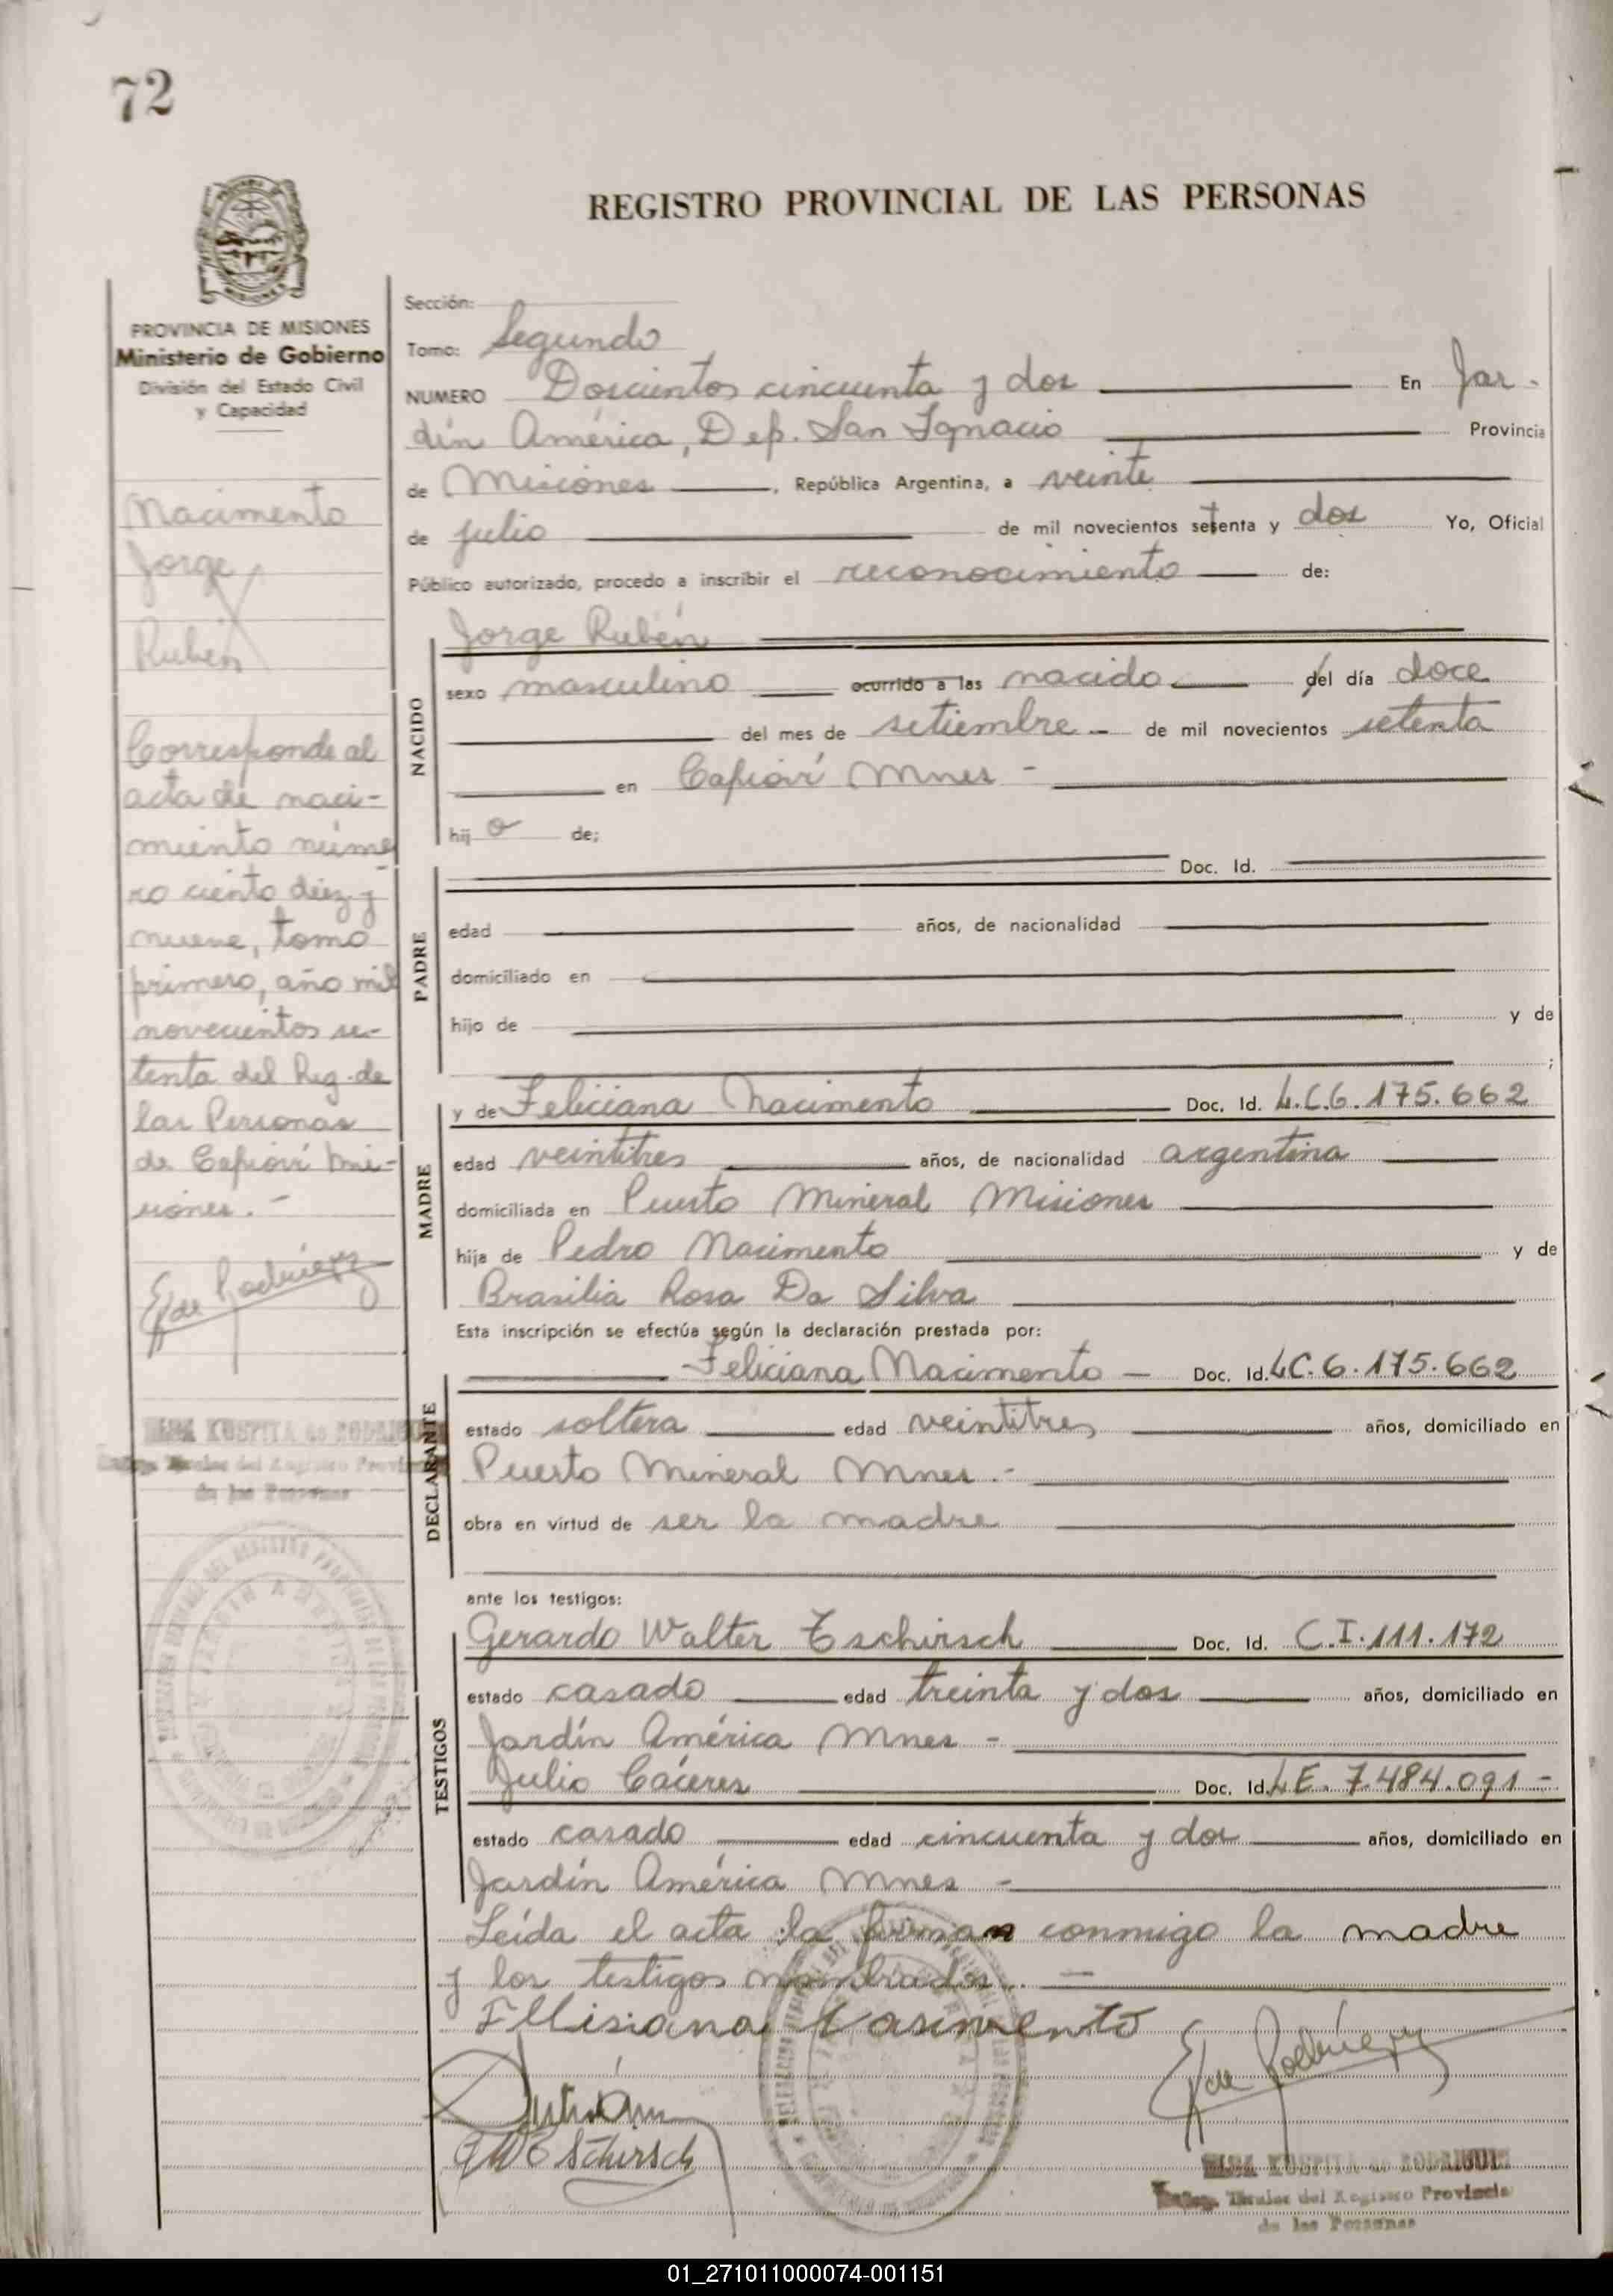 72
REGISTRO PROVINCIAL DE LAS PERSONAS
PROVINCIA DE MISIONES
Ministerio de Gobierno
División del Estado Civil
y Capacidad
Nacimento
Jorge
Rubén
Corresponde al
acta de naci-
miento núme
ro ciento diez y
nueve, tomo
primero, año mil
novecientos se-
tenta del Reg. de
las Personas
de Capioví Mi-
siones. -
E K de Rodríguez
ELSA KUSPITA de RODRIGUEZ
Titular del Registro Provincial
de las Personas
Sección:
Tomo: Segundo
NUMERO Doscientos cincuenta y dos En Jar-
dín América, Dep. San Ignacio Provincia
de Misiones, República Argentina, a veinte
de julio de mil novecientos setenta y dos Yo, Oficial
Público autorizado, procedo a inscribir el reconocimiento de:
NACIDO
Jorge Rubén
sexo masculino ocurrido a las nacido del día doce
del mes de setiembre - de mil novecientos setenta
en Capioví Mnes -
hij o de;
PADRE
Doc. Id.
edad años, de nacionalidad
domiciliado en
hijo de y de
;
MADRE
y de Feliciana Nacimento Doc. Id. L.C. 6.175.662
edad veintitres años, de nacionalidad argentina
domiciliada en Puerto Mineral Misiones
hija de Pedro Nacimento y de
Brasilia Rosa Da Silva
Esta inscripción se efectúa según la declaración prestada por:
DECLARANTE
Feliciana Nacimento - Doc. Id. L.C. 6.175.662
estado soltera edad veintitres años, domiciliado en
Puerto Mineral Mnes.-
obra en virtud de ser la madre
ante los testigos:
TESTIGOS
Gerardo Walter Tschirsch Doc. Id. C.I. 111.172
estado casado edad treinta y dos años, domiciliado en
Jardín América Mnes -
Julio Cáceres Doc. Id. L.E. 7.484.091 -
estado casado edad cincuenta y dos años, domiciliado en
Jardín América Mnes -
Leída el acta la firman conmigo la madre
y los testigos nombrados. -
FIlisiana Nasimento
E K de Rodríguez
GWTSchirsch
ELSA KUSPITA de RODRIGUEZ
Titular del Registro Provincial
de las Personas
01_271011000074-001151